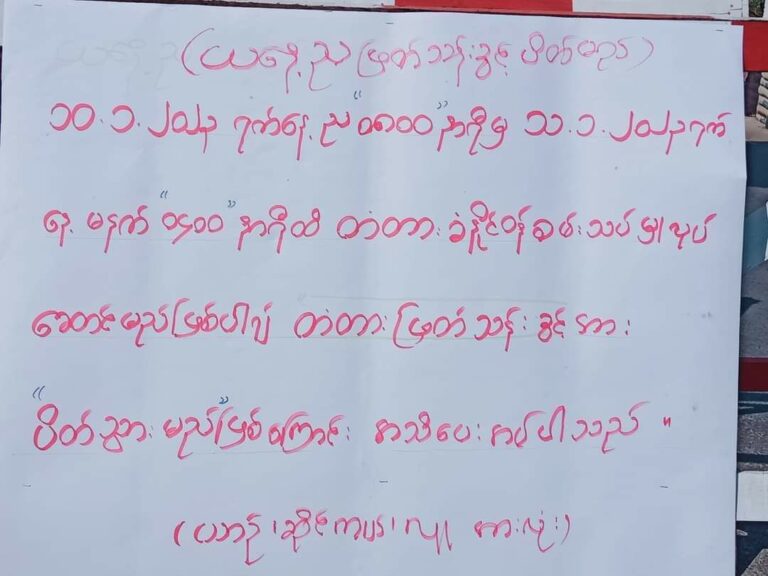 (ယနေ့ည ဖြတ်သန်းခွင့် ပိတ်မည်)
၁၀.၁.၂၀၂၃ ရက်နေ့ ည "၀၈၀၀" နာရီမှ ၁၁.၁.၂၀၂၃ ရက်
နေ့ မနက် "၀၄၀၀" နာရီထိ တံတား ခံနိုင်ဝန် စမ်းသပ်မှု လုပ်
ဆောင်မည်ဖြစ်ပါ၍ တံတား ဖြတ်သန်းခွင့် အား
"ပိတ်ထားမည်" ဖြစ်ကြောင်း အသိပေးအပ်ပါသည်။
(ယာဉ်၊ ဆိုင်ကယ်၊ လူ အားလုံး)